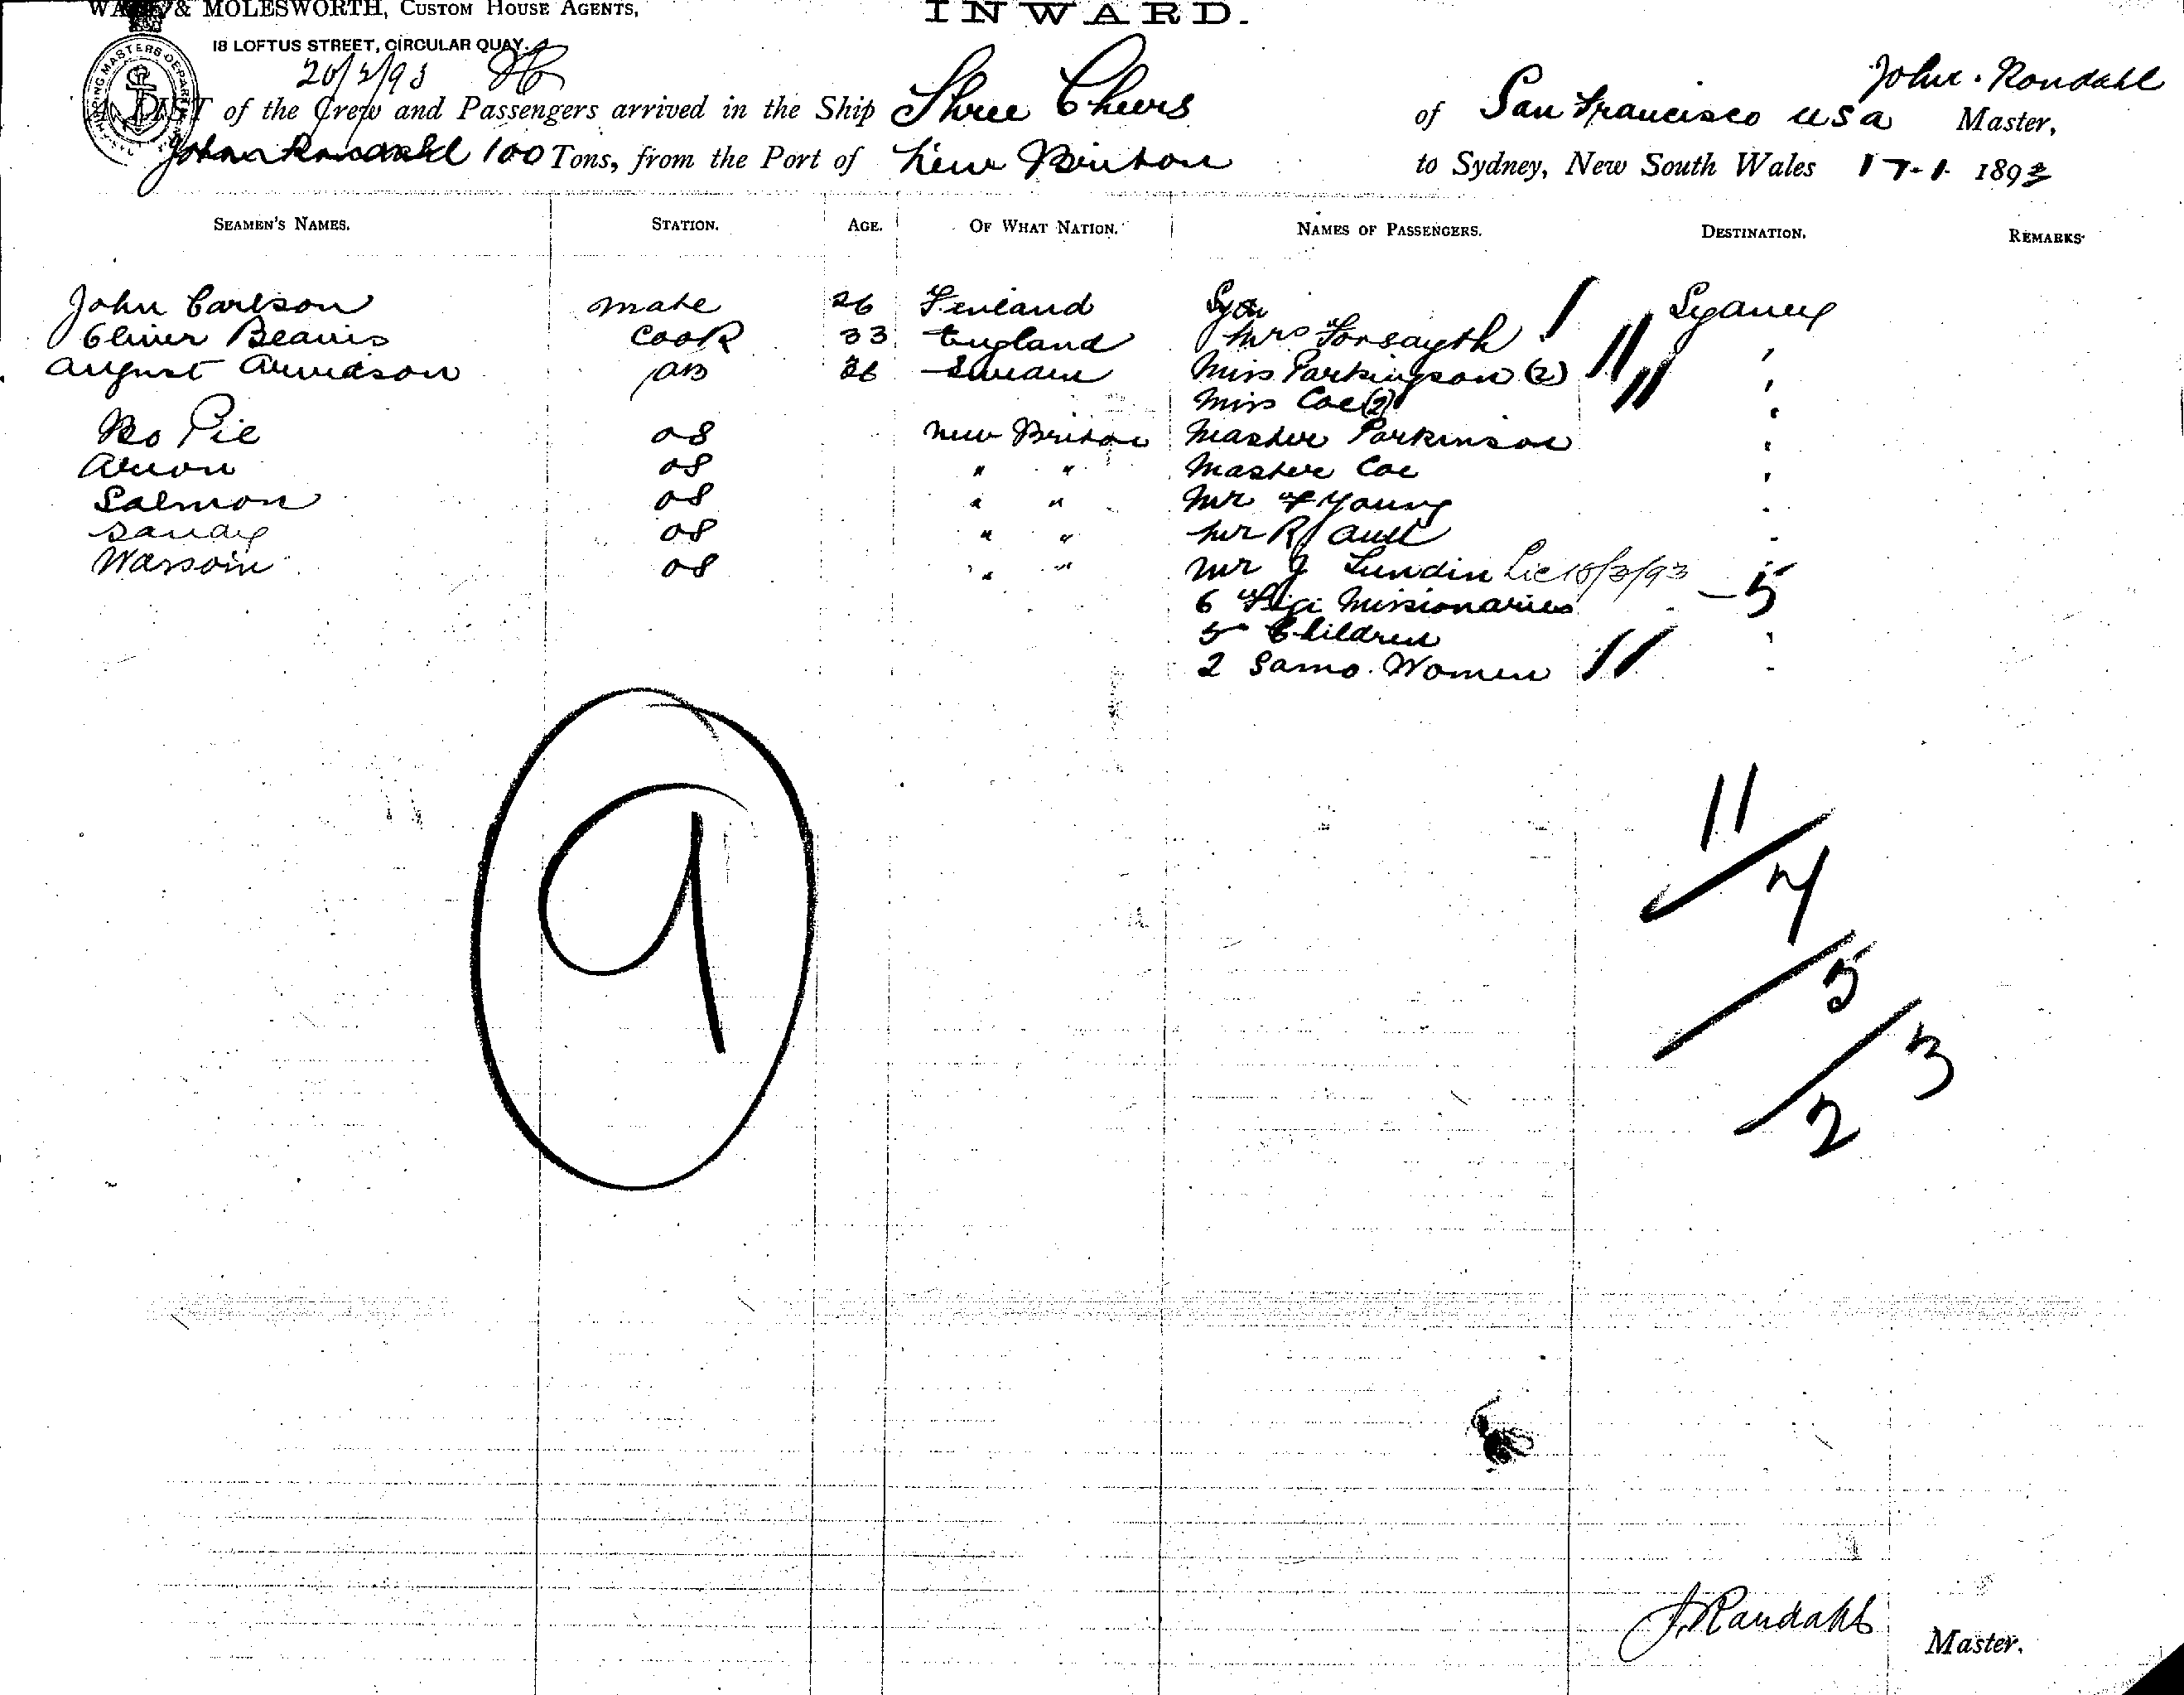 & MOLESWORTH, CUSTOM HOUSE AGENTS,
INWARD.
18 LOFTUS STREET, CIRCULAR QUAY.
20/2/93
A LIST of the Crew and Passengers arrived in the Ship Three Cheers of San Francisco USA John Rondahl Master,
John Rondahl 100 Tons, from the Port of New Briton to Sydney, New South Wales 17-1 1893
SEAMEN'S NAMES. STATION. AGE. OF WHAT NATION. NAMES OF PASSENGERS. DESTINATION. REMARKS.
John Carlson mate 26 Finland Sydney
Oliver Beavis Cook 33 England Mrs Forsayth
August Arvidson AB 26 Sweden Miss Parkingson (2)
Miss Coe (2)
Bo Pie OS New Briton Master Parkinson
Arion OS " " Master Coe
Salmon OS " " Mr F Young
Sandy OS " " Mr R Ault
Warsoin OS " " Mr J Lundin Lic 18/3/93 - 5
6 Fiji Missionaries
5 Children
2 Samo. Women
9
11
4
5
3
2
J. Randahl Master.